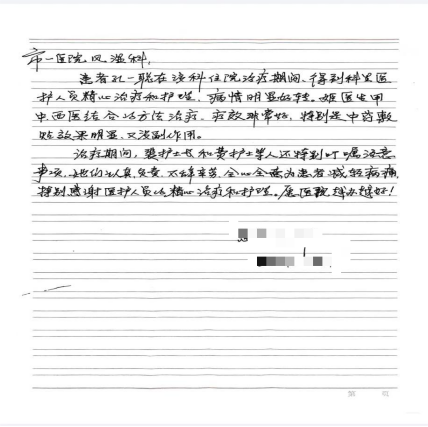 市一医院风湿科:
患者孔一聪在该科住院治疗期间、得到科里医
护人员精心治疗和护理、病情明显好转。姬医生用
中西医结合的方法治疗、疗效非常好,特别是中药敷
贴效果明显、又没副作用。
治疗期间,裴护士长和黄护士等人还特别叮嘱注意
事项,她们认真负责、不辞辛苦、全心全意为患者减轻病痛
特别感谢医护人员的精心治疗和护理。愿医院越办越好!
第 页